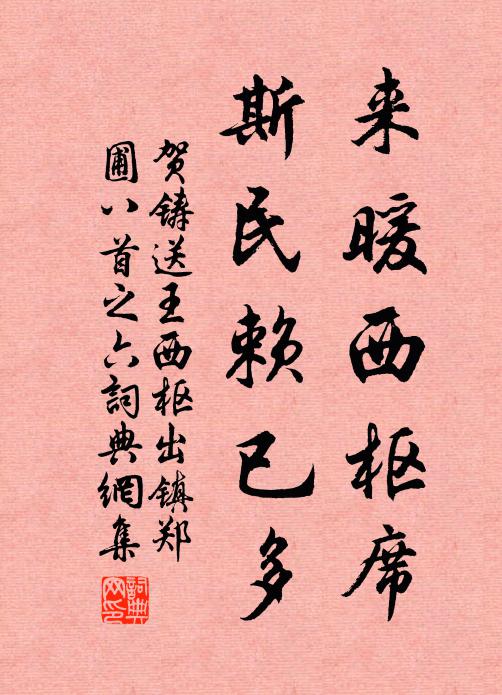 来暖西枢席
斯民赖已多
贺铸送王西枢出镇郑
圃八首之六詞典網集
詞典
网印